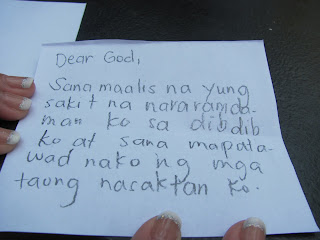 Dear God,
Sana maalis na yung
sakit na nararamda-
man ko sa dibdib
ko at sana mapata-
wad nako ng mga
taong nasaktan ko.